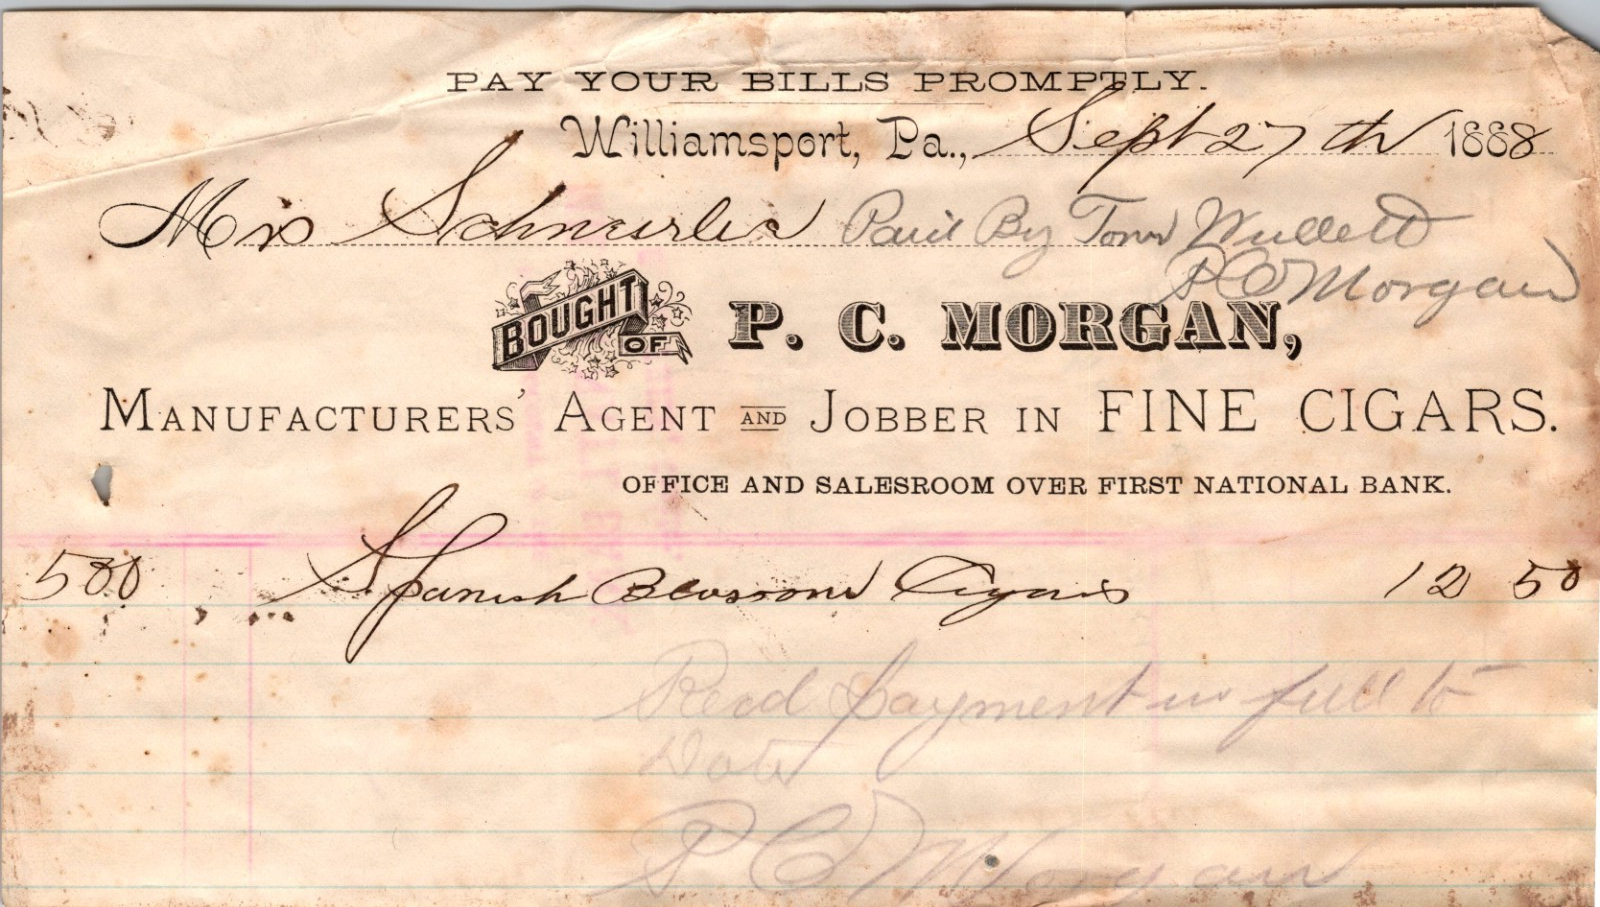 PAY YOUR BILLS PROMPTLY.
Williamsport, Pa., Sept 27th 1888
Paid By Tom
P C Morgan
BOUGHT OF P. C. MORGAN,
MANUFACTURERS' AGENT AND JOBBER IN FINE CIGARS.
OFFICE AND SALESROOM OVER FIRST NATIONAL BANK.
500 Spanish Blossom Cigars 12 50
Recd payment in full to
Date
P C Morgan